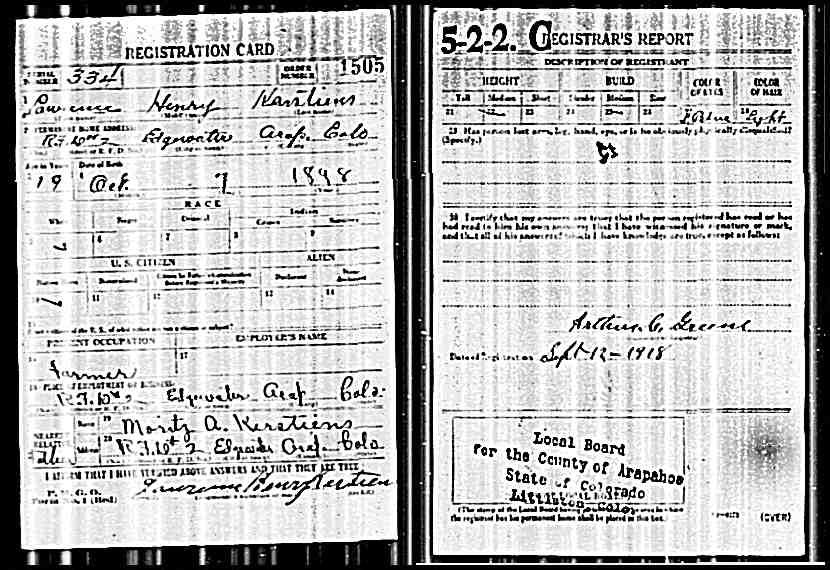 REGISTRATION CARD
SERIAL NUMBER 334 ORDER NUMBER 1505
Lawrence Henry Kerstiens
PERMANENT HOME ADDRESS:
R.F.D. No 2 Edgewater Arap. Colo
Age in Years Date of Birth
19 Oct. 7 1898
RACE
White Negro Oriental Indian
Citizen
6 7 8 9
U.S. CITIZEN ALIEN
Native Born Naturalized Citizen by Father's Naturalization Before Registrant's Majority Declarant Non-declarant
11 12 13 14
PRESENT OCCUPATION EMPLOYER'S NAME
17
Farmer
PLACE OF EMPLOYMENT OR BUSINESS
R.F.D. No 2 Edgewater Arap Colo.
Name 19 Moritz A. Kerstiens
NEAREST RELATIVE Address 20 R.F.D. # 2 Edgewater Arap. Colo
I AFFIRM THAT I HAVE VERIFIED ABOVE ANSWERS AND THAT THEY ARE TRUE
P. M. G. O.
Form No. 1 (Red) Lawrence Henry Kerstiens
5-2-2. REGISTRAR'S REPORT
DESCRIPTION OF REGISTRANT
HEIGHT BUILD COLOR OF EYES COLOR OF HAIR
Tall Medium Short Slender Medium Stout
21 22 23 24 25 26 27 Blue 28 Light
29 Has person lost arm, leg, hand, eye, or is he obviously physically disqualified?
(Specify.)
30 I certify that my answers are true; that the person registered has read or has
had read to him his own answers; that I have witnessed his signature or mark,
and that all of his answers of which I have knowledge are true, except as follows:
Arthur C. Greene
Date of Registration Sept 12-1918
Local Board
For the County of Arapahoe
State of Colorado
Littleton, Colo.
(The stamp of the Local Board having jurisdiction of the area in which
the registrant has his permanent home shall be placed in this box.)
(OVER)